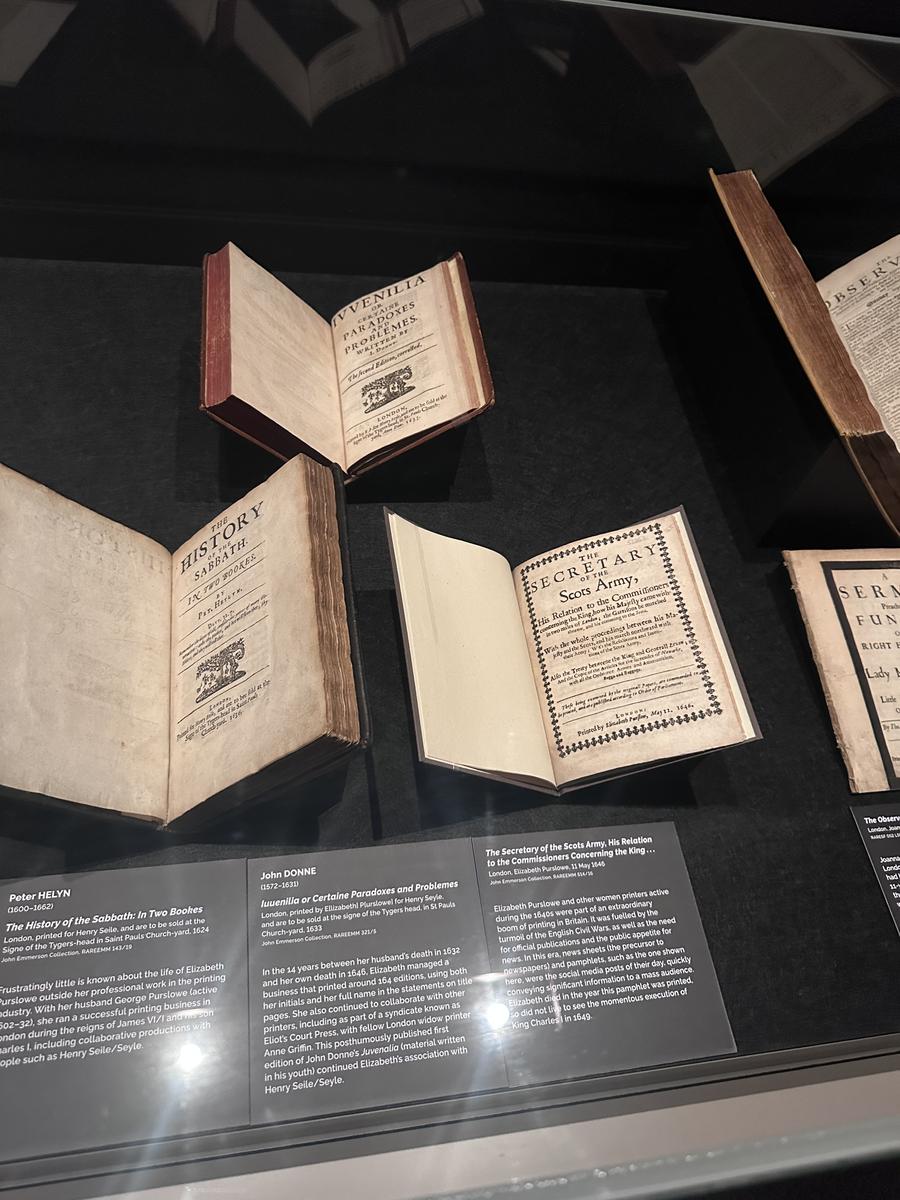 IVVENILIA
OR
CERTAINE
PARADOXES
AND
PROBLEMES.
WRITTEN BY
I. Donne.
The second Edition, corrected.
LONDON,
Printed by E. P. for Henry Seyle, and are to be sold at the
signe of the Tygers head, in St. Pauls Church-
yard, Anno Dom. 1633.
THE
HISTORY
OF THE
SABBATH.
IN TWO BOOKES.
BY
PET. HEYLYN.
LONDON,
Printed for Henry Seile, and are to bee sold at the
Signe of the Tygers-head in Saint Pauls
Church-yard. 1636.
THE
SECRETARY
OF THE
Scots Army,
His Relation to the Commissioners
concerning the King, how his Majesty came with-
in two miles of London, the Garrisons he marched
thorow, and his comming to the Scots.
With the whole proceedings between his Ma-
jesty and the Scots, and his march northward with
their Army; With the Resolutions and Inten-
tions of the Scots Army.
Also the Treaty between the King and Generall Leven;
And the Copie of the Articles for the surrender of Newarke,
with all the Ordnance, Armes, and Ammunition,
Bagge and Baggage.
These being examined by the originall Papers, are commanded to
be printed, and are published according to Order of Parliament.
LONDON:
Printed by Elizabeth Purslow, May 11. 1646.
THE
OBSERV
A
SERM
Preach
FUN
RIGHT H
Lady
Little
Peter HELYN
(1600–1662)
The History of the Sabbath: In Two Bookes
London, printed for Henry Seile, and are to be sold at the
Signe of the Tygers-head in Saint Pauls Church-yard, 1624
John Emmerson Collection, RAREEMM 143/19
Frustratingly little is known about the life of Elizabeth
Purslowe outside her professional work in the printing
industry. With her husband George Purslowe (active
1602–32), she ran a successful printing business in
London during the reigns of James VI/I and his son
Charles I, including collaborative productions with
people such as Henry Seile/Seyle.
John DONNE
(1572–1631)
Iuuenilia or Certaine Paradoxes and Problemes
London, printed by E[lizabeth] P[urslowe] for Henry Seyle,
and are to be sold at the signe of the Tygers head, in St Pauls
Church-yard, 1633
John Emmerson Collection, RAREEMM 321/5
In the 14 years between her husband's death in 1632
and her own death in 1646, Elizabeth managed a
business that printed around 164 editions, using both
her initials and her full name in the statements on title
pages. She also continued to collaborate with other
printers, including as part of a syndicate known as
Eliot's Court Press, with fellow London widow printer
Anne Griffin. This posthumously published first
edition of John Donne's Juvenalia (material written
in his youth) continued Elizabeth's association with
Henry Seile/Seyle.
The Secretary of the Scots Army, His Relation
to the Commissioners Concerning the King . . .
London, Elizabeth Purslowe, 11 May 1646
John Emmerson Collection, RAREEMM 614/16
Elizabeth Purslowe and other women printers active
during the 1640s were part of an extraordinary
boom of printing in Britain. It was fuelled by the
turmoil of the English Civil Wars, as well as the need
for official publications and the public appetite for
news. In this era, news sheets (the precursor to
newspapers) and pamphlets, such as the one shown
here, were the social media posts of their day, quickly
conveying significant information to a mass audience.
Elizabeth died in the year this pamphlet was printed,
so did not live to see the momentous execution of
King Charles I in 1649.
The Observ
London, Joan
Joanna
Londo
had
11-